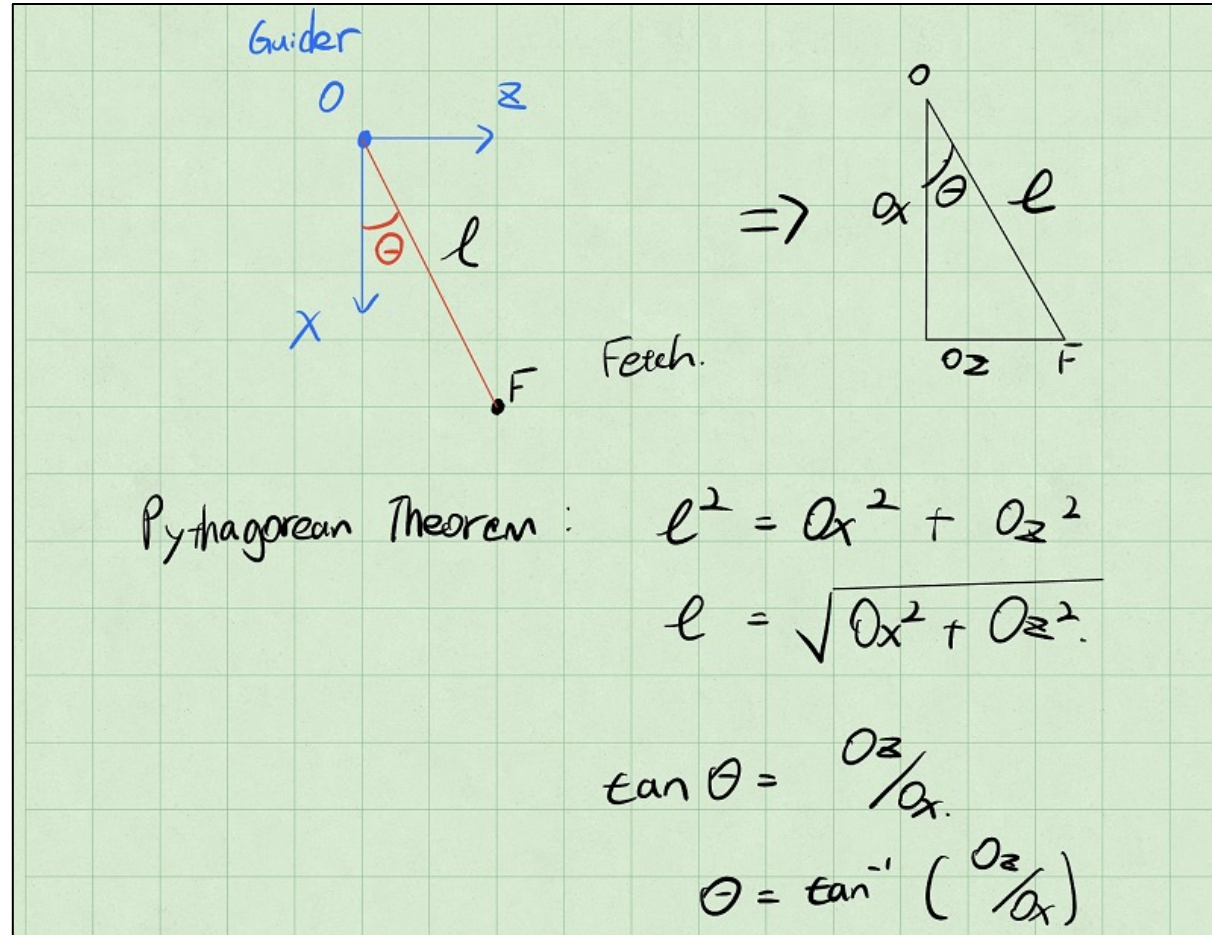 Guider
O z
θ l
X
F
Fetch.
=>
O
Ox θ l
Oz F
Pythagorean Theorem : l² = Ox² + Oz²
l = √Ox² + Oz².
tan θ = Oz/Ox.
θ = tan⁻¹ (Oz/Ox)